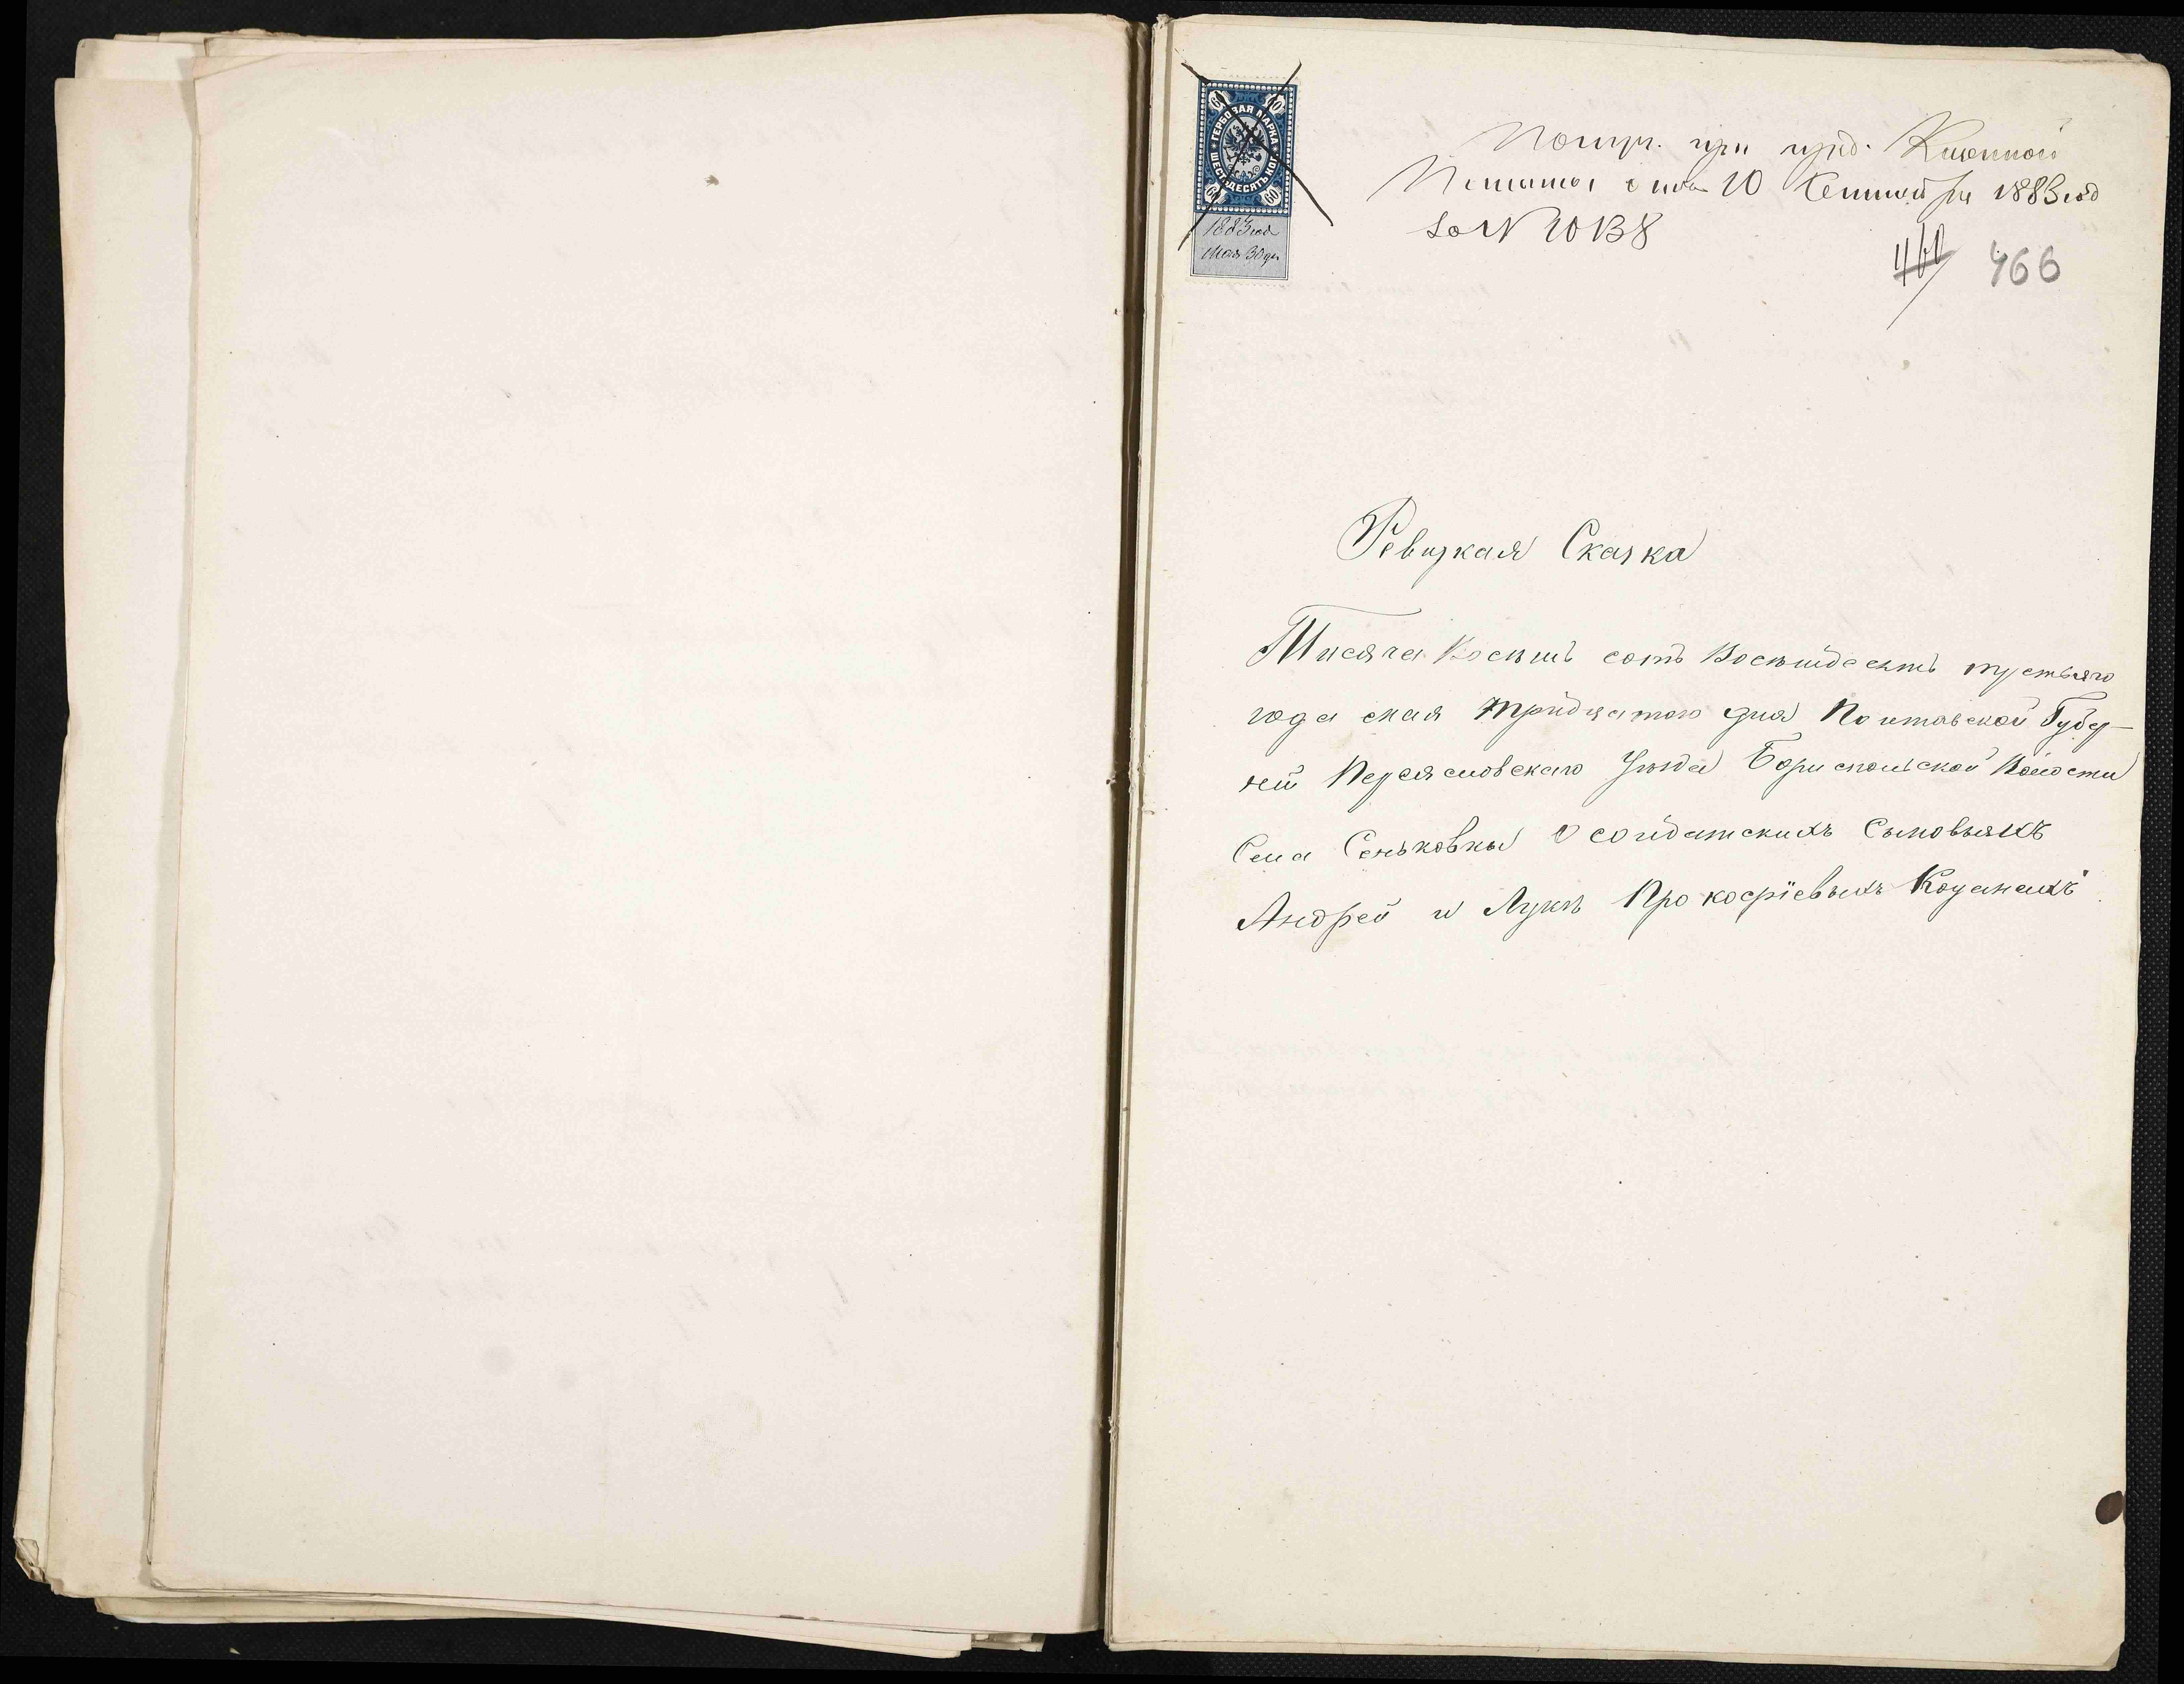 ГЕРБОВАЯ МАРКА
ШЕСТЬДЕСЯТЪ КОП.
60 60
60 60
1883 год
мая 30 дн
Получ. при пред. Казенной
Палаты отъ 10 Сентября 1883 год
за N 10138
460 466
Ревизкая Сказка
Тисяча Восемь сотъ Восемдесятъ третьяго
года мая тридцатого дня Полтавской Губер-
ніи Переясловскаго Уезда Бориспольской Волости
Села Сеньковки О солдатскихъ Сыновьяхъ
Андрей и Луке Прокофіевыхъ